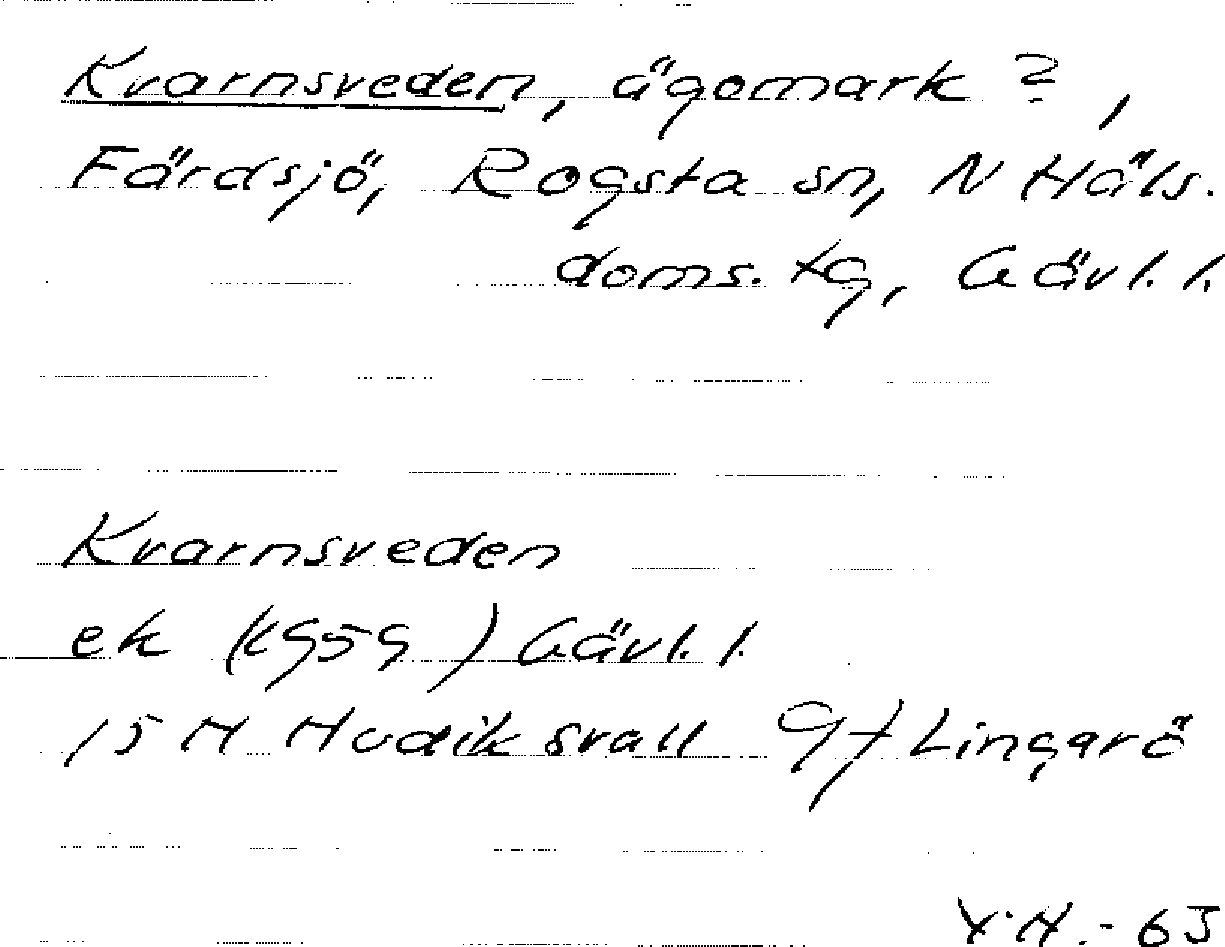 Kvarnsveden, ägomark ?,
Färdsjö, Rogsta sn, N Häls.
doms. tg, Gävl. l.
Kvarnsveden
ek (K959) Gävl. l.
15 H Hudiksvall 9f Lingarö